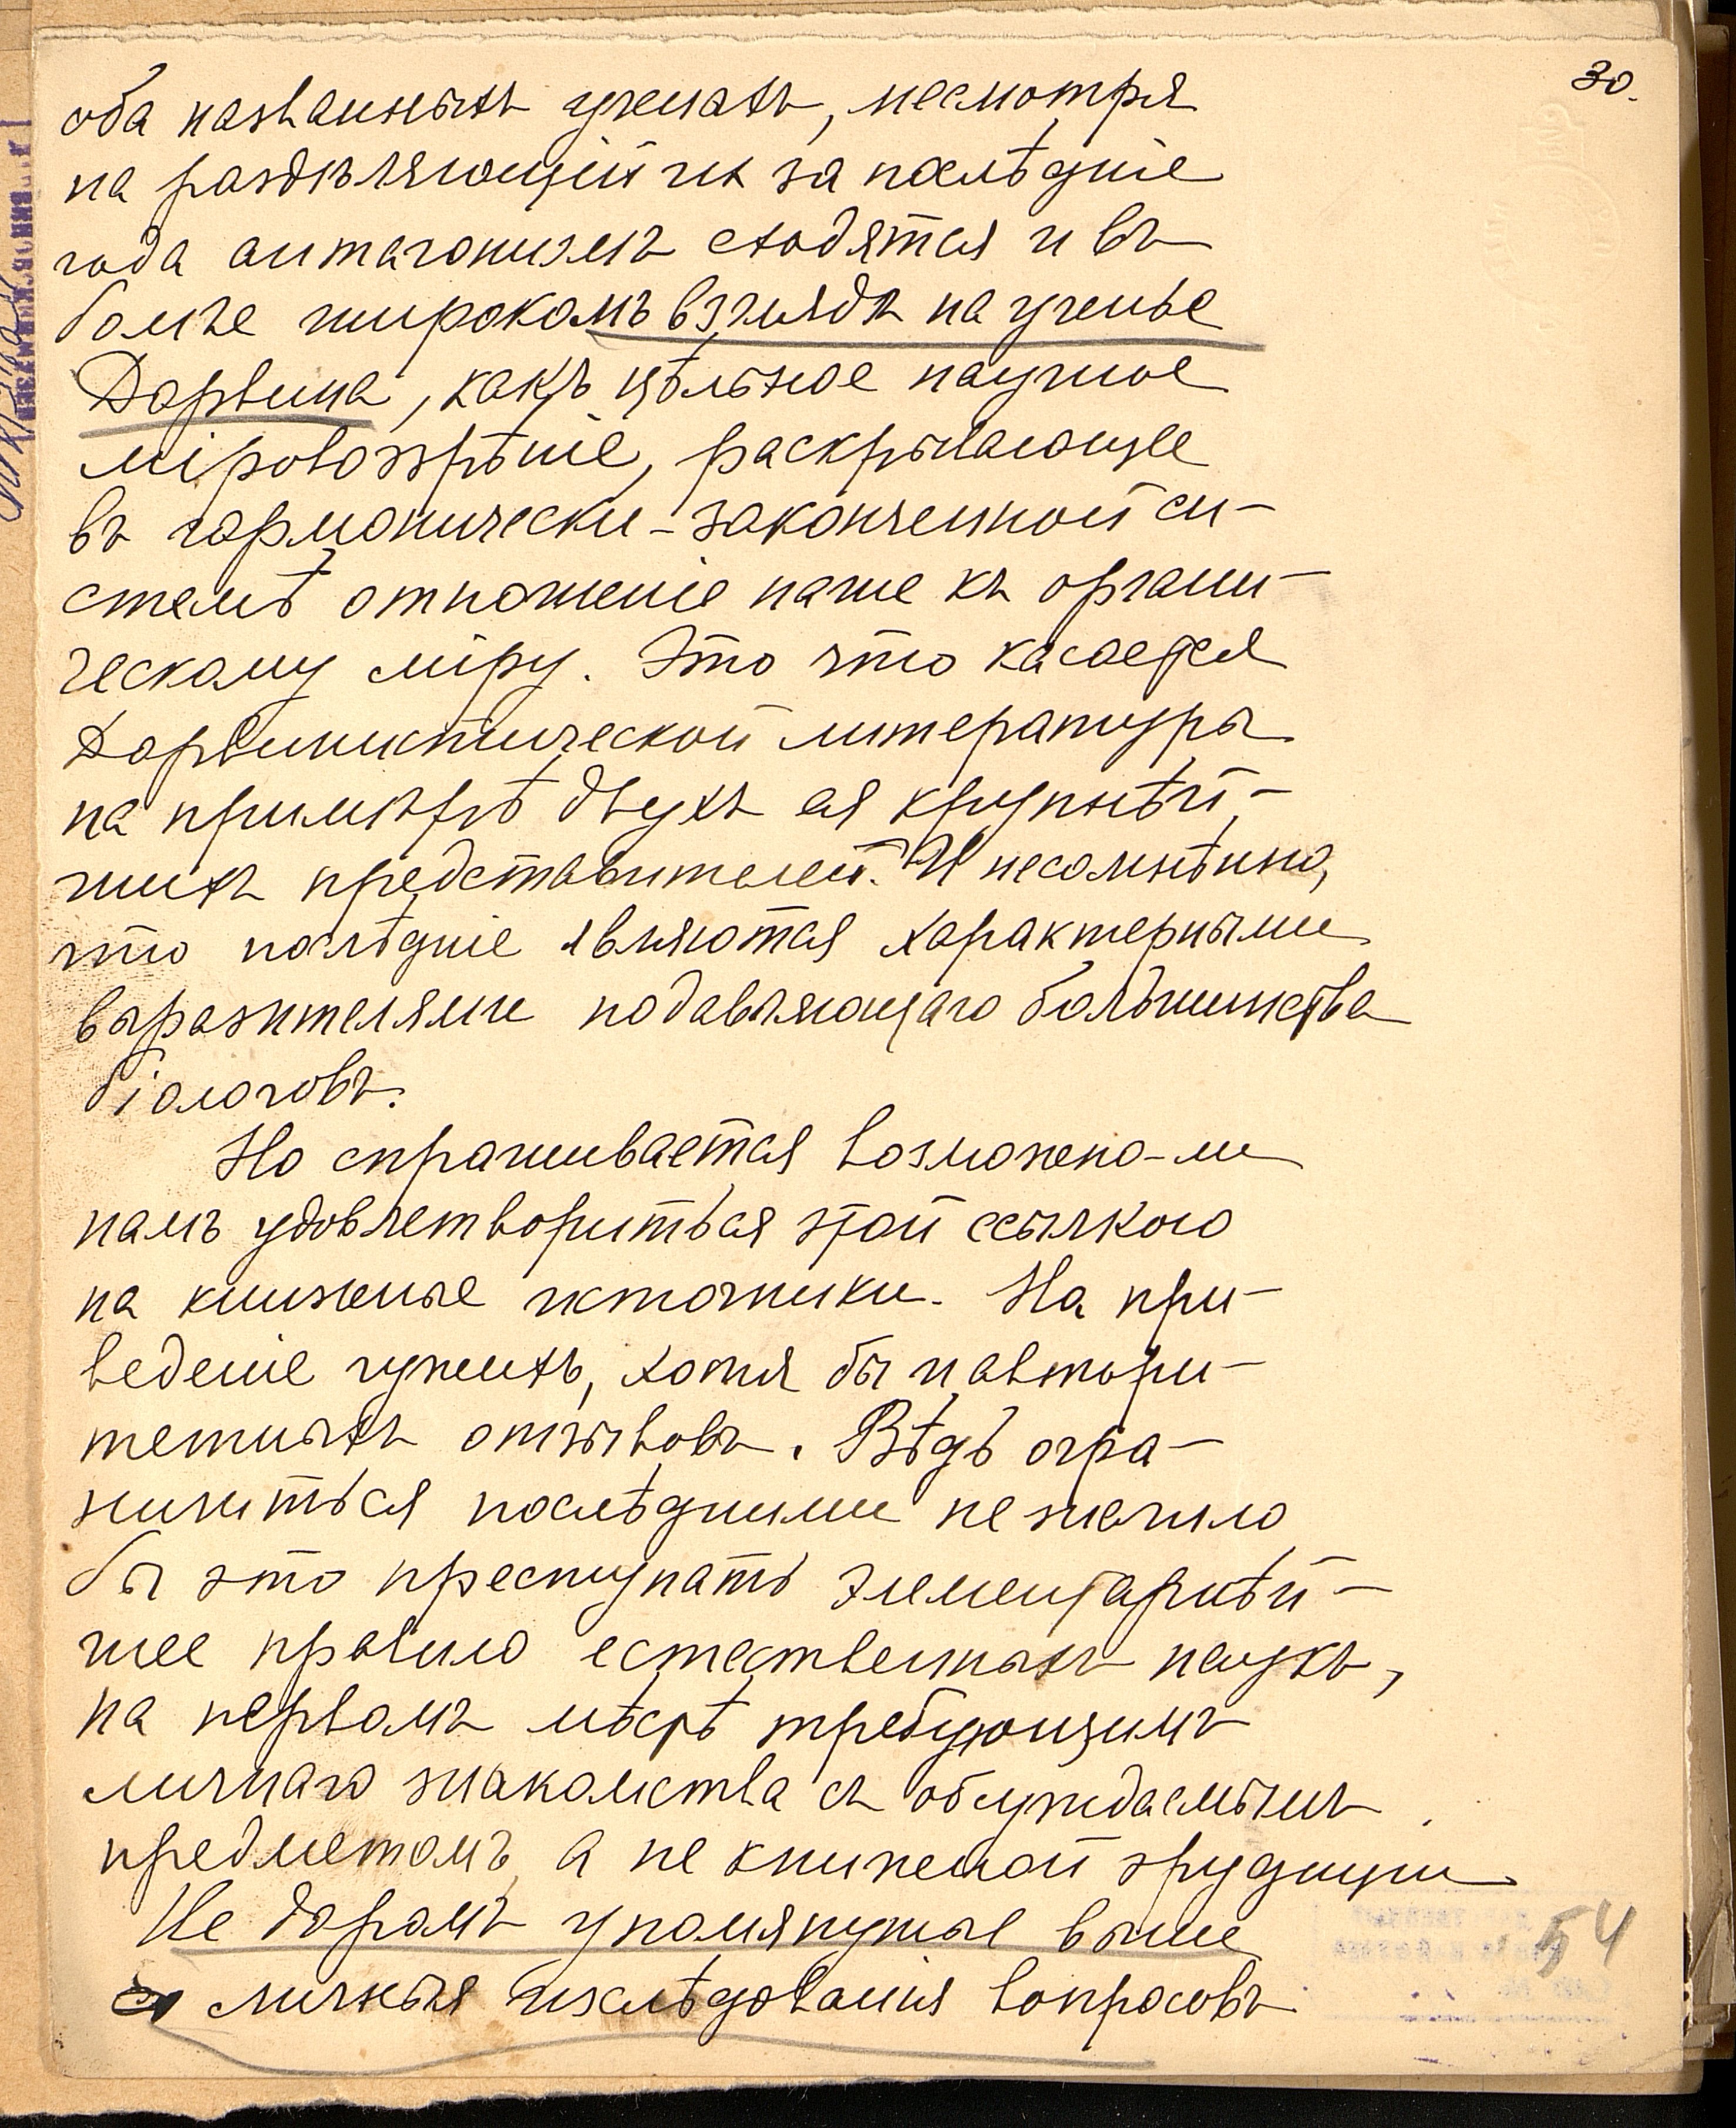 30.
оба названныхъ ученыхъ, несмотря
на раздѣляющій их за послѣдніе
года антагонизмъ сходятся и въ
болѣе широкомъ взглядѣ на ученье
Дарвина, какъ цѣльное научное
міровоззрѣніе, раскрывающее
въ гармонически-законченной си-
стемѣ отношеніе наше къ органи-
ческому міру. Это что касается
Дарвинистической литературы
на примѣрѣ двухъ ея крупнѣй-
шихъ представителей. И несомнѣнно,
что послѣдніе являются характерными
выразителями подавляющаго большинства
біологовъ.
Но спрашивается возможно-ли
намъ удовлетвориться этой ссылкою
на книжные источники. На при-
веденіе чужихъ, хотя бы и автори-
тетныхъ отзывовъ. Вѣдь огра-
ничиться послѣдними не значило
бы это преступать элементарнѣй-
шее правило естественныхъ наукъ,
на первомъ мѣстѣ требующимъ
личнаго знакомства съ обсуждаемымъ
предметомъ, а не книжной эрудиціи
Не даромъ упомянутые выше
личныя изслѣдованія вопросовъ
54